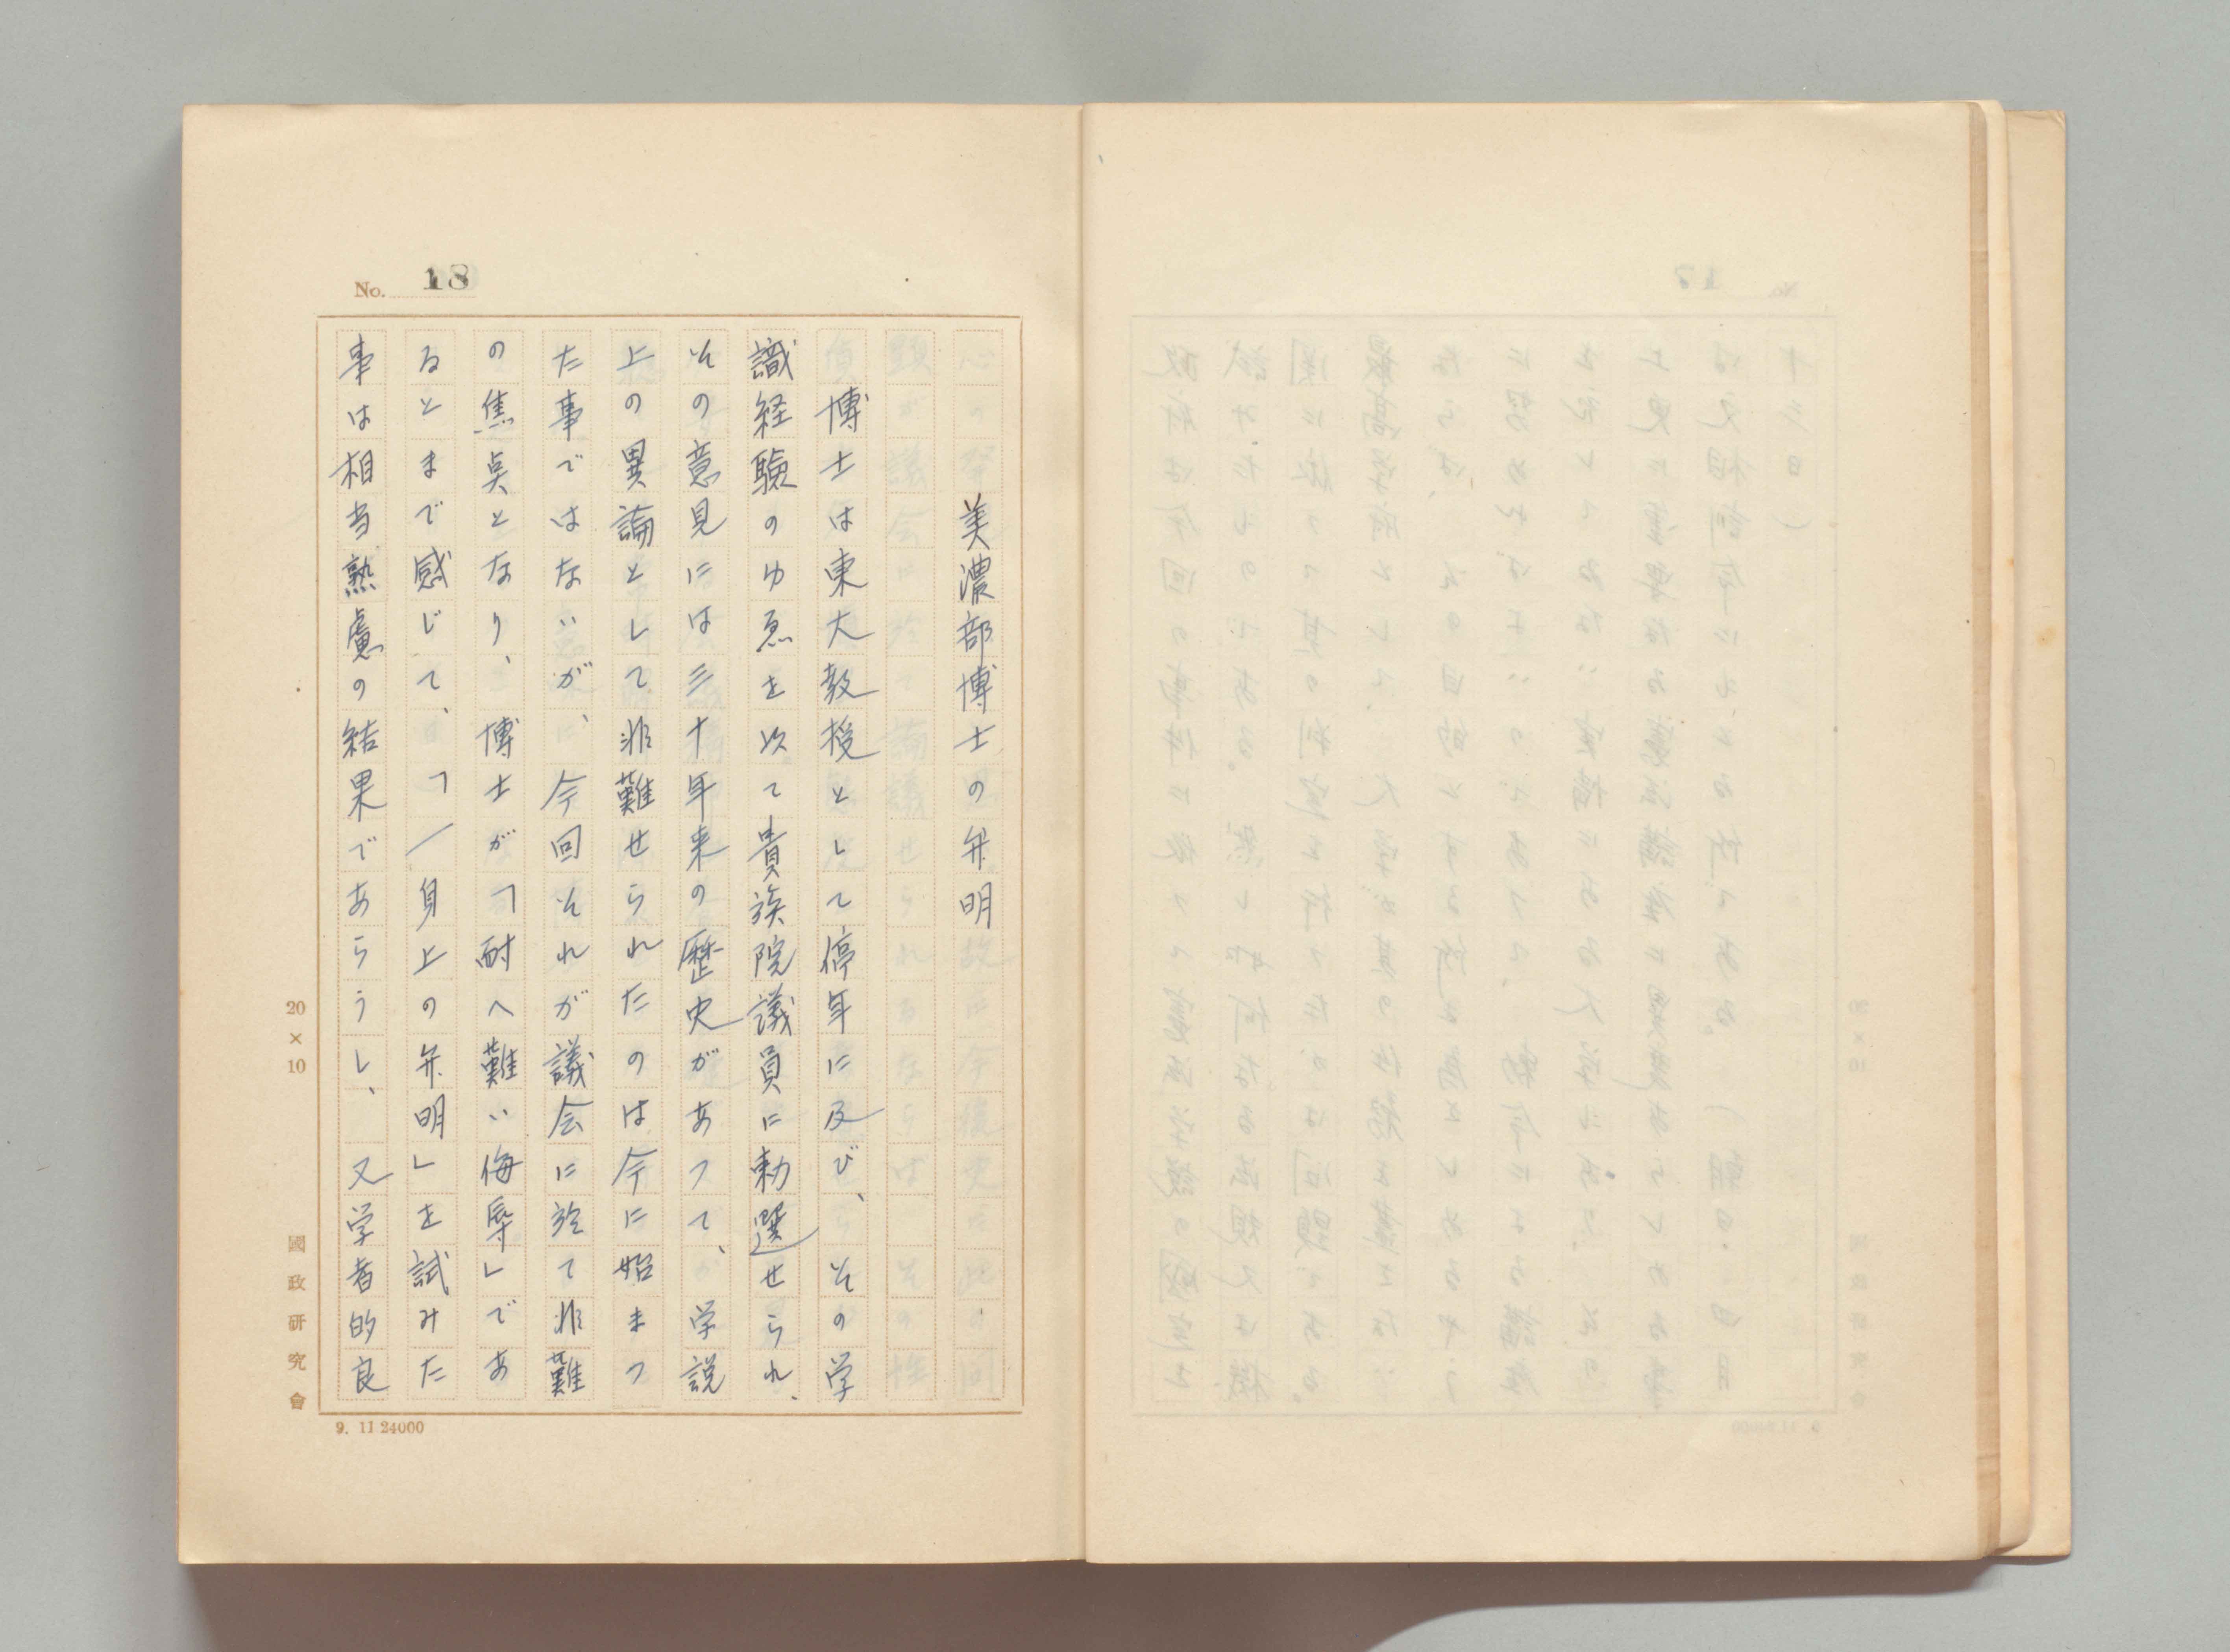 No. 18
美濃部博士の弁明
博士は東大教授として停年に及び、その学
識経験のゆゑを以て貴族院議員に勅選せられ、
その意見には三十年来の歴史があつて、学説
上の異論として非難せられたのは今に始まつ
た事ではないが、今回それが議会に於て非難
の焦点となり、博士が「耐へ難い侮辱」であ
るとまで感じて、「一身上の弁明」を試みた
事は相当熟慮の結果であらうし、又学者的良
20×10
國政研究會
9. 11 24000